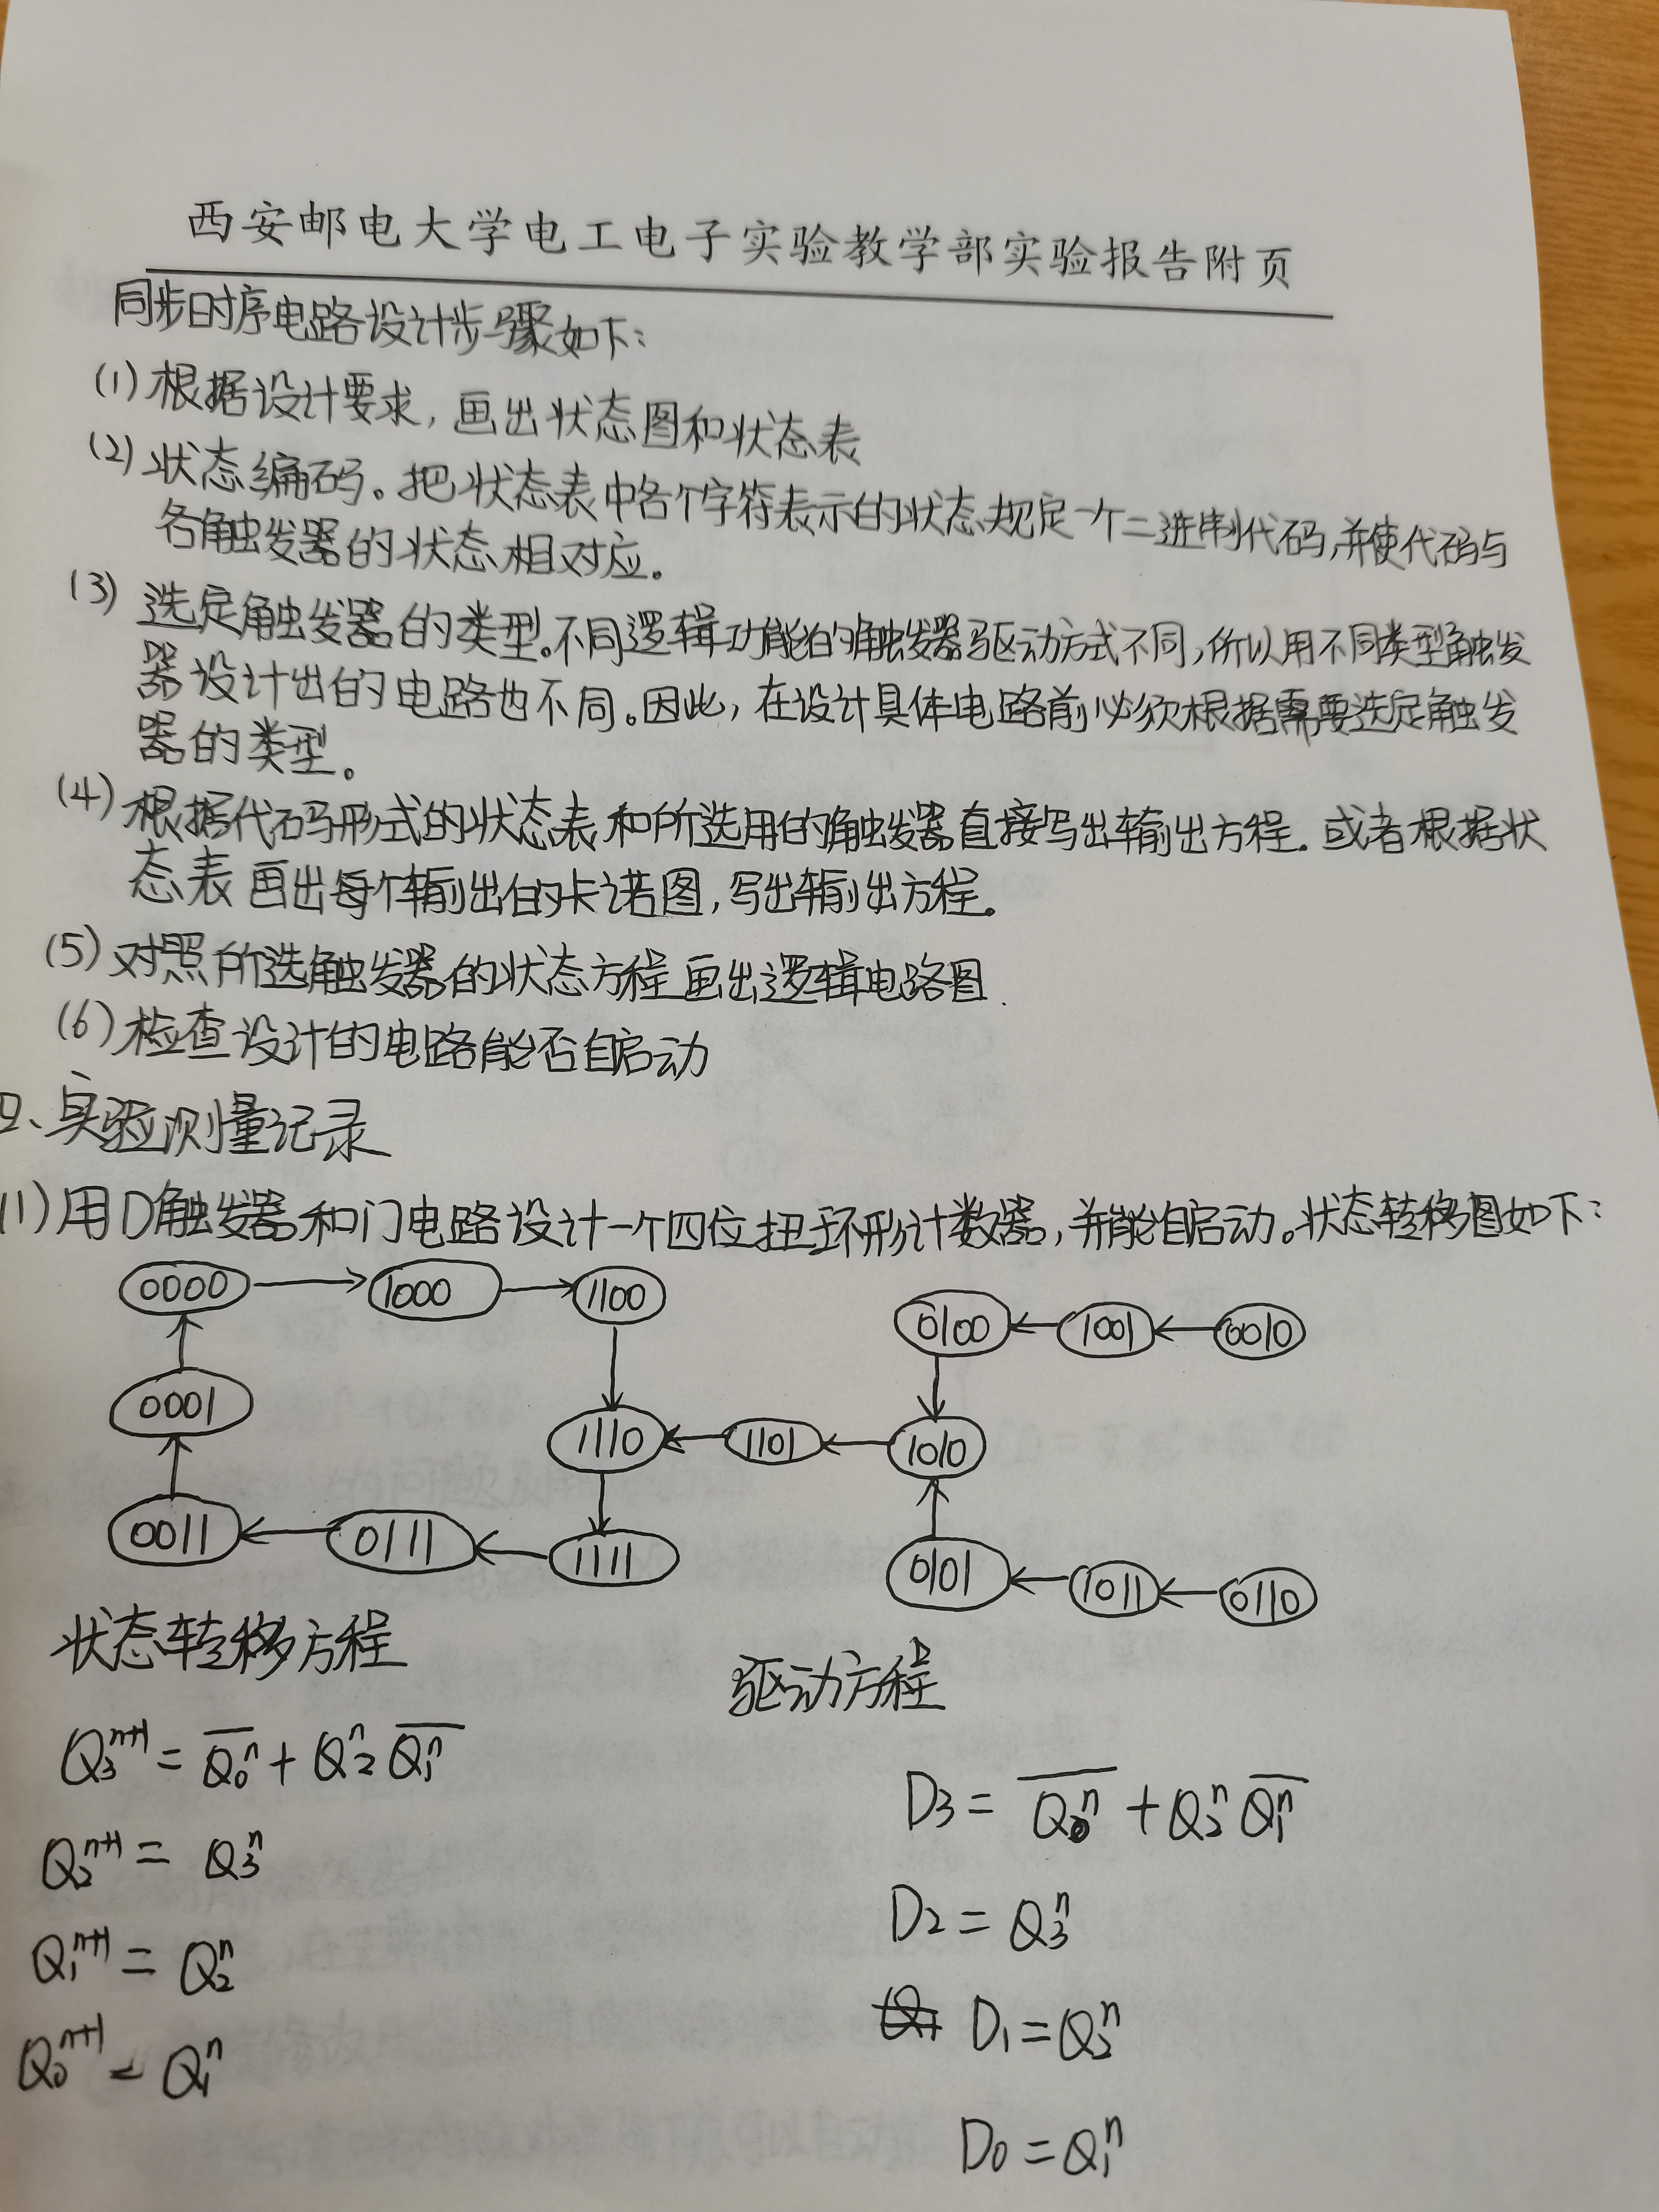 西安邮电大学电工电子实验教学部实验报告附页
同步时序电路设计步骤如下：
(1) 根据设计要求，画出状态图和状态表
(2) 状态编码。把状态表中各个字符表示的状态规定一个二进制代码，并使代码与
各触发器的状态相对应。
(3) 选定触发器的类型。不同逻辑功能的触发器驱动方式不同，所以用不同类型触发
器设计出的电路也不同。因此，在设计具体电路前必须根据需要选定触发
器的类型。
(4) 根据代码形式的状态表和所选用的触发器直接写出输出方程。或者根据状
态表画出每个输出的卡诺图，写出输出方程。
(5) 对照所选触发器的状态方程画出逻辑电路图.
(6) 检查设计的电路能否自启动
四、实验测量记录
(1) 用D触发器和门电路设计一个四位扭环形计数器，并能自启动。状态转移图如下：
0000 → 1000 → 1100
0100 ← 1001 ← 0010
0001
1110 ← 1101 ← 1010
0011 ← 0111 ← 1111
0101 ← 1011 ← 0110
状态转移方程
Q₃ⁿ⁺¹ = \overline{Q₀ⁿ} + Q₂ⁿ \overline{Q₁ⁿ}
Q₂ⁿ⁺¹ = Q₃ⁿ
Q₁ⁿ⁺¹ = Q₂ⁿ
Q₀ⁿ⁺¹ = Q₁ⁿ
驱动方程
D₃ = \overline{Q₀ⁿ} + Q₂ⁿ \overline{Q₁ⁿ}
D₂ = Q₃ⁿ
D₁ = Q₂ⁿ
D₀ = Q₁ⁿ